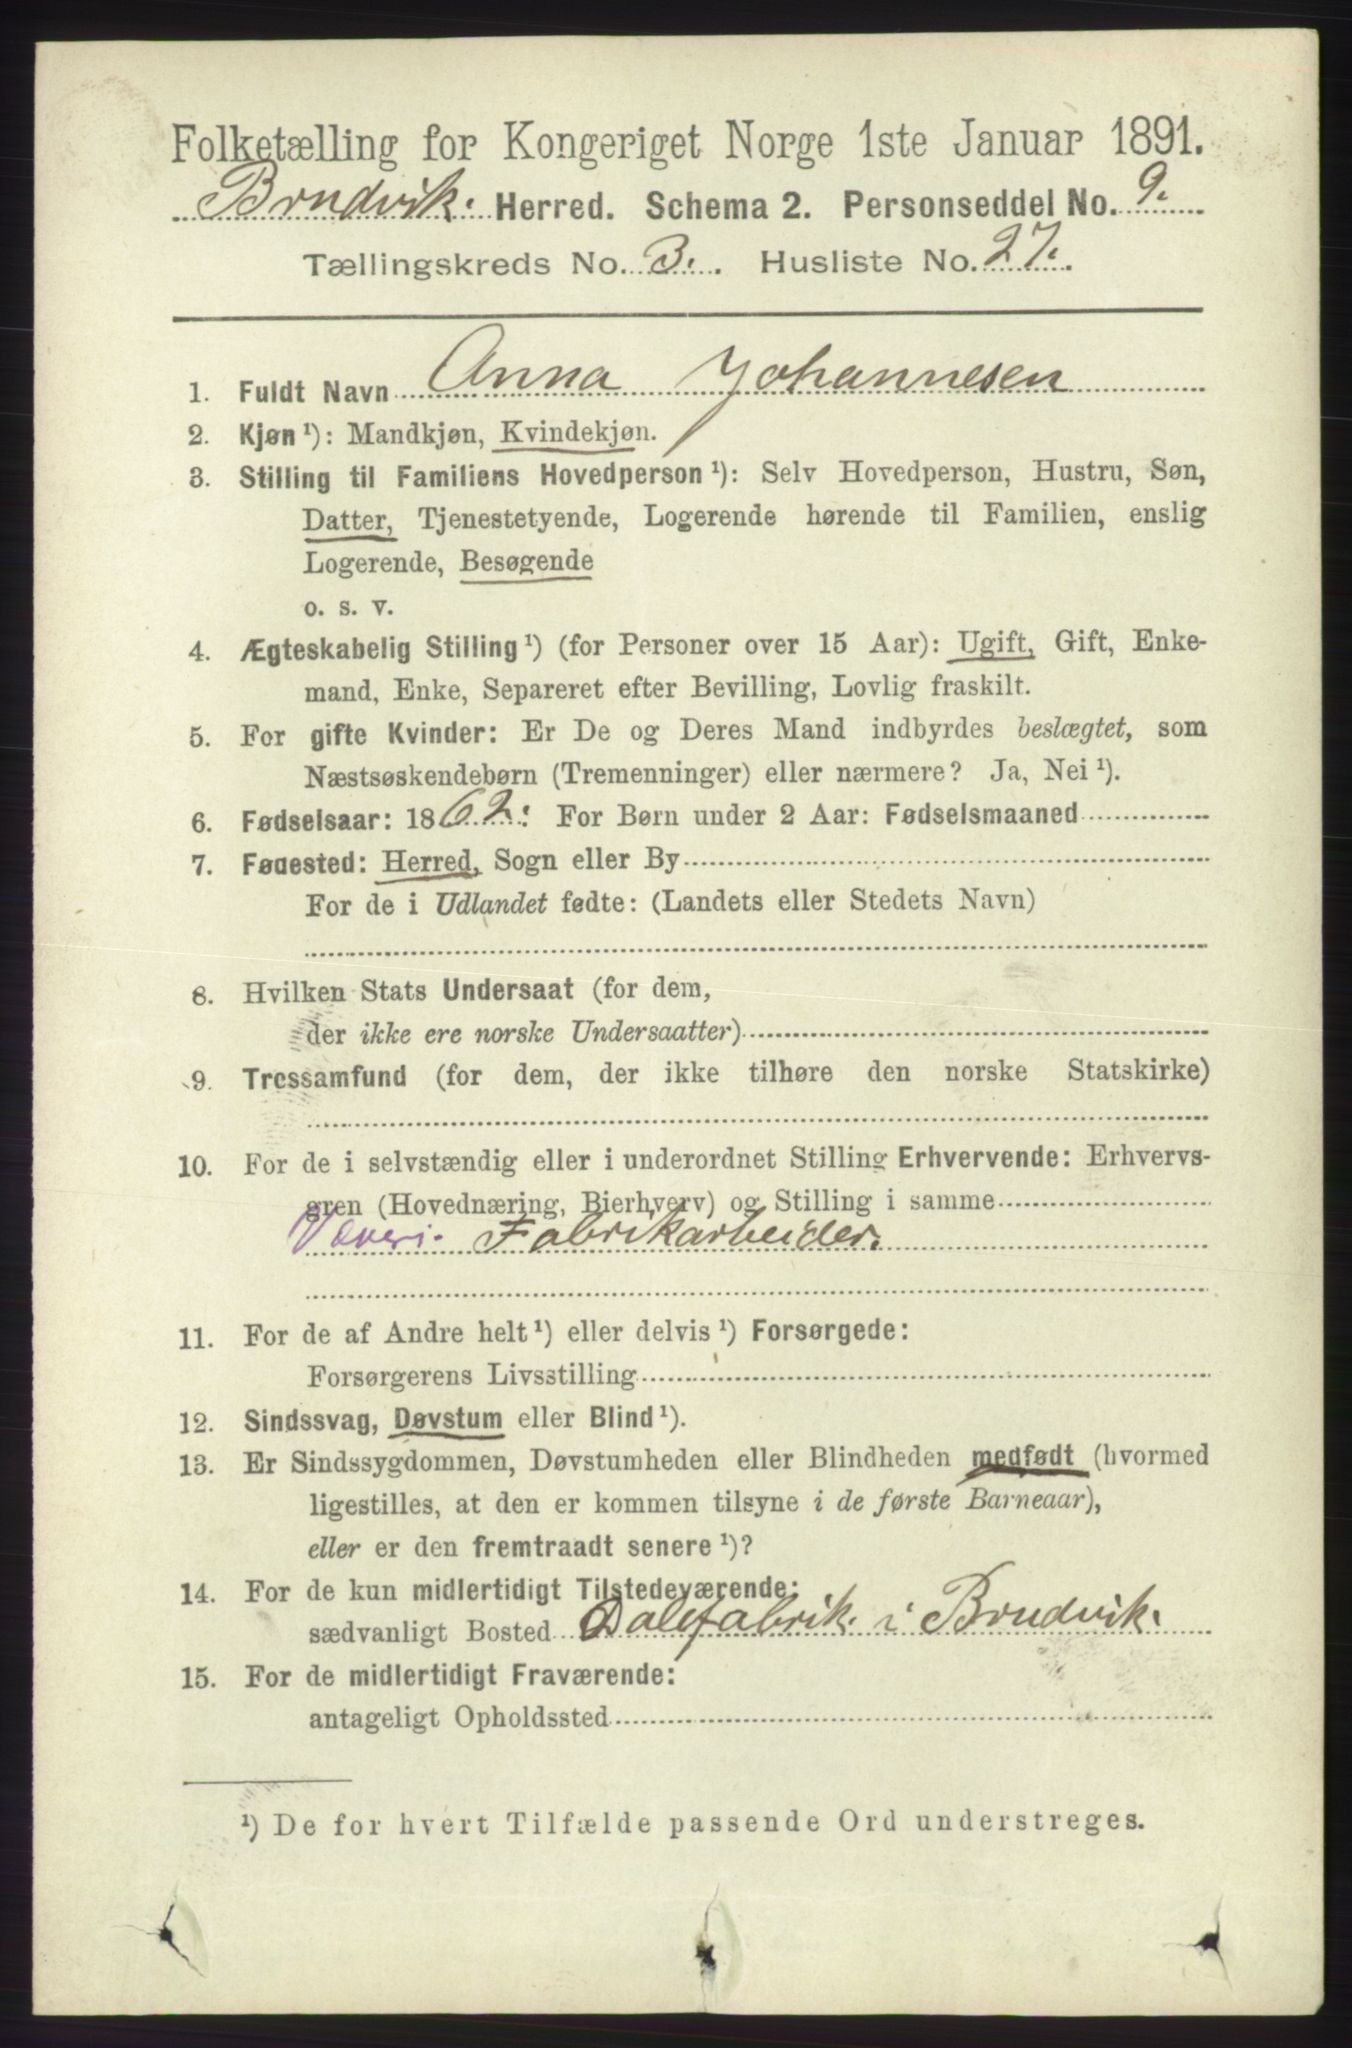 Folketælling for Kongeriget Norge 1ste Januar 1891.
Brudvik. Herred. Schema 2. Personseddel No. 9.
Tællingskreds No. 3. Husliste No. 27.
1. Fuldt Navn Anna Johannesen
2. Kjøn ¹): Mandkjøn, Kvindekjøn.
3. Stilling til Familiens Hovedperson ¹): Selv Hovedperson, Hustru, Søn,
Datter, Tjenestetyende, Logerende hørende til Familien, enslig
Logerende, Besøgende
o. s. v.
4. Ægteskabelig Stilling ¹) (for Personer over 15 Aar): Ugift, Gift, Enke-
mand, Enke, Separeret efter Bevilling, Lovlig fraskilt.
5. For gifte Kvinder: Er De og Deres Mand indbyrdes beslægtet, som
Næstsøskendebørn (Tremenninger) eller nærmere? Ja, Nei ¹).
6. Fødselsaar: 1862. For Børn under 2 Aar: Fødselsmaaned
7. Fødested: Herred, Sogn eller By
For de i Udlandet fødte: (Landets eller Stedets Navn)
8. Hvilken Stats Undersaat (for dem,
der ikke ere norske Undersaatter)
9. Trossamfund (for dem, der ikke tilhøre den norske Statskirke)
10. For de i selvstændig eller i underordnet Stilling Erhvervende: Erhvervs-
gren (Hovednæring, Bierhverv) og Stilling i samme
Væveri. Fabrikarbeider.
11. For de af Andre helt ¹) eller delvis ¹) Forsørgede:
Forsørgerens Livsstilling
12. Sindssvag, Døvstum eller Blind ¹).
13. Er Sindssygdommen, Døvstumheden eller Blindheden medfødt (hvormed
ligestilles, at den er kommen tilsyne i de første Barneaar),
eller er den fremtraadt senere ¹)?
14. For de kun midlertidigt Tilstedeværende:
sædvanligt Bosted Dalefabrik. i Brudvik.
15. For de midlertidigt Fraværende:
antageligt Opholdssted
¹) De for hvert Tilfælde passende Ord understreges.